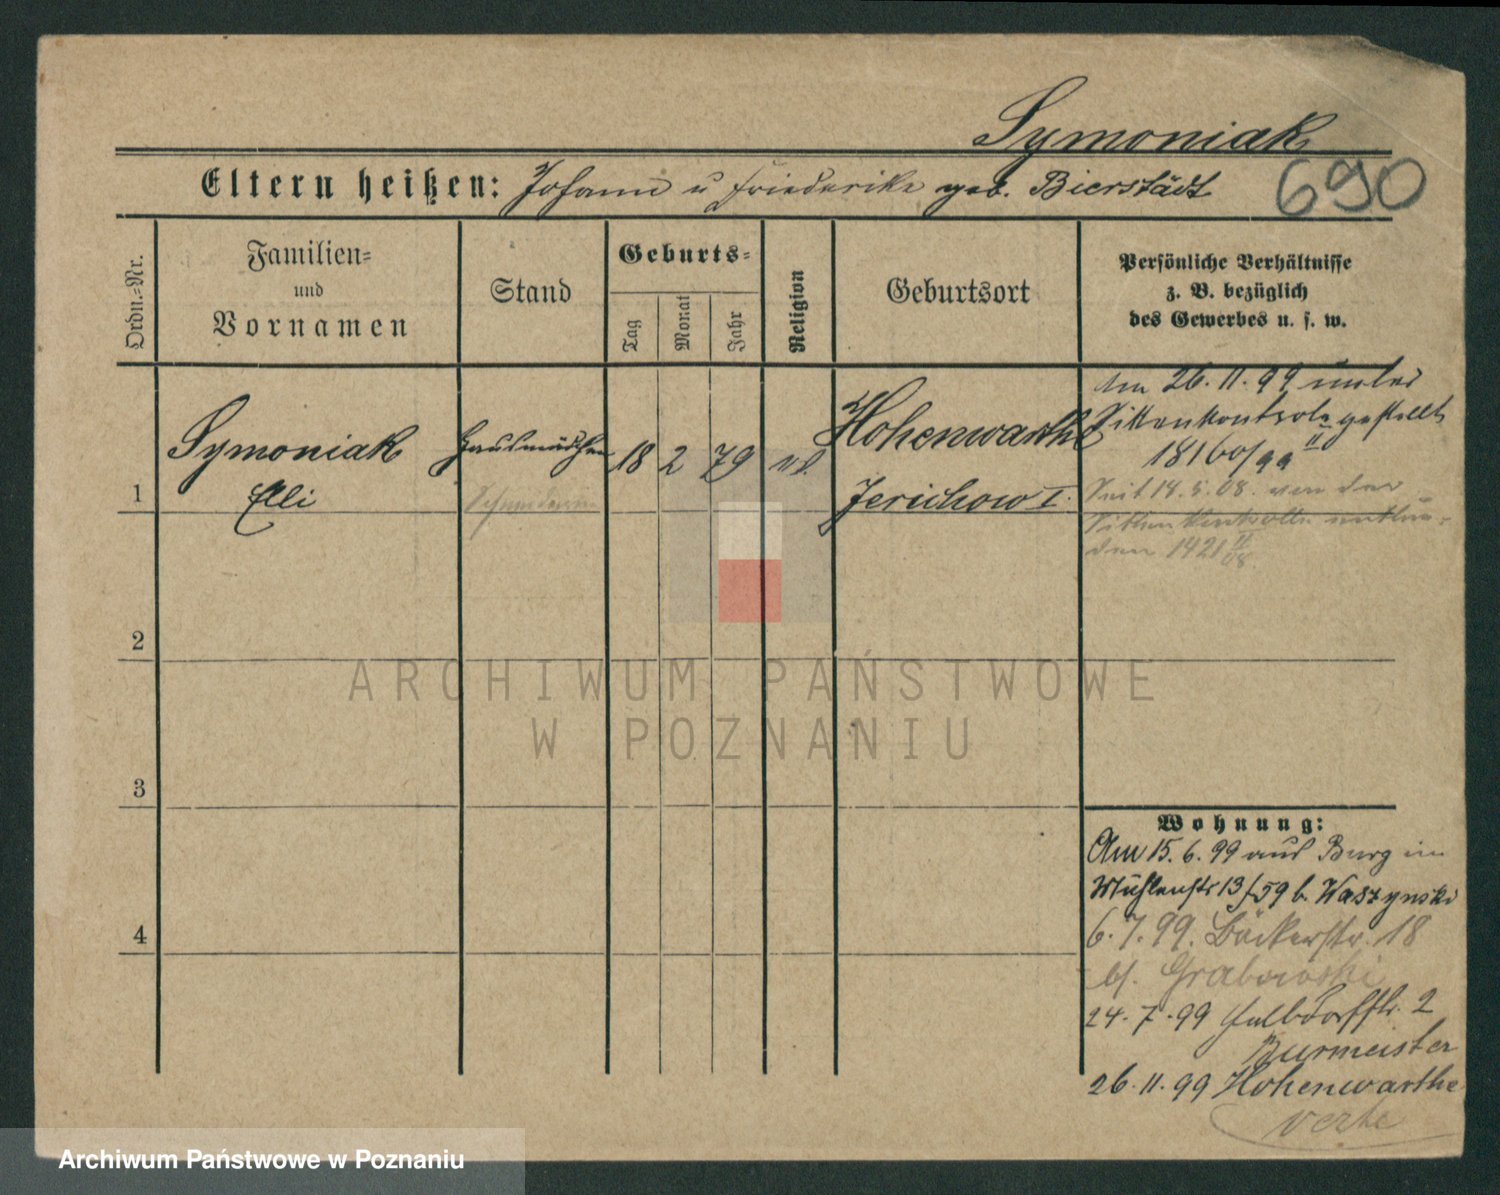 Symoniak
690
Eltern heißen: Johann u Friederike geb. Bierstädt
Ordn.=Nr.
Familien=
und
Vornamen
Stand
Geburts=
Tag
Monat
Jahr
Religion
Geburtsort
Persönliche Verhältnisse
z. B. bezüglich
des Gewerbes u. s. w.
1
Symoniak
Elli
Hausmädchen
18
2
79
Hohenwarthe
Jerichow I.
Am 26.11.99 unter
Sittenkontrole gestellt
18160/99 II
Seit 14.5.08. von der
Sitten Kontrolle entbun-
den 1421 II/08
2
3
4
Wohnung:
Am 15.6.99 aus Burg in
Mühlenstr 13/59 b. Waszynski
6.7.99. Bäckerstr. 18
bf. Grabowski
24.7.99 Halbdorfstr. 2
Burmeister
26.11.99 Hohenwarthe
verte
ARCHIWUM PAŃSTWOWE
W POZNANIU
Archiwum Państwowe w Poznaniu